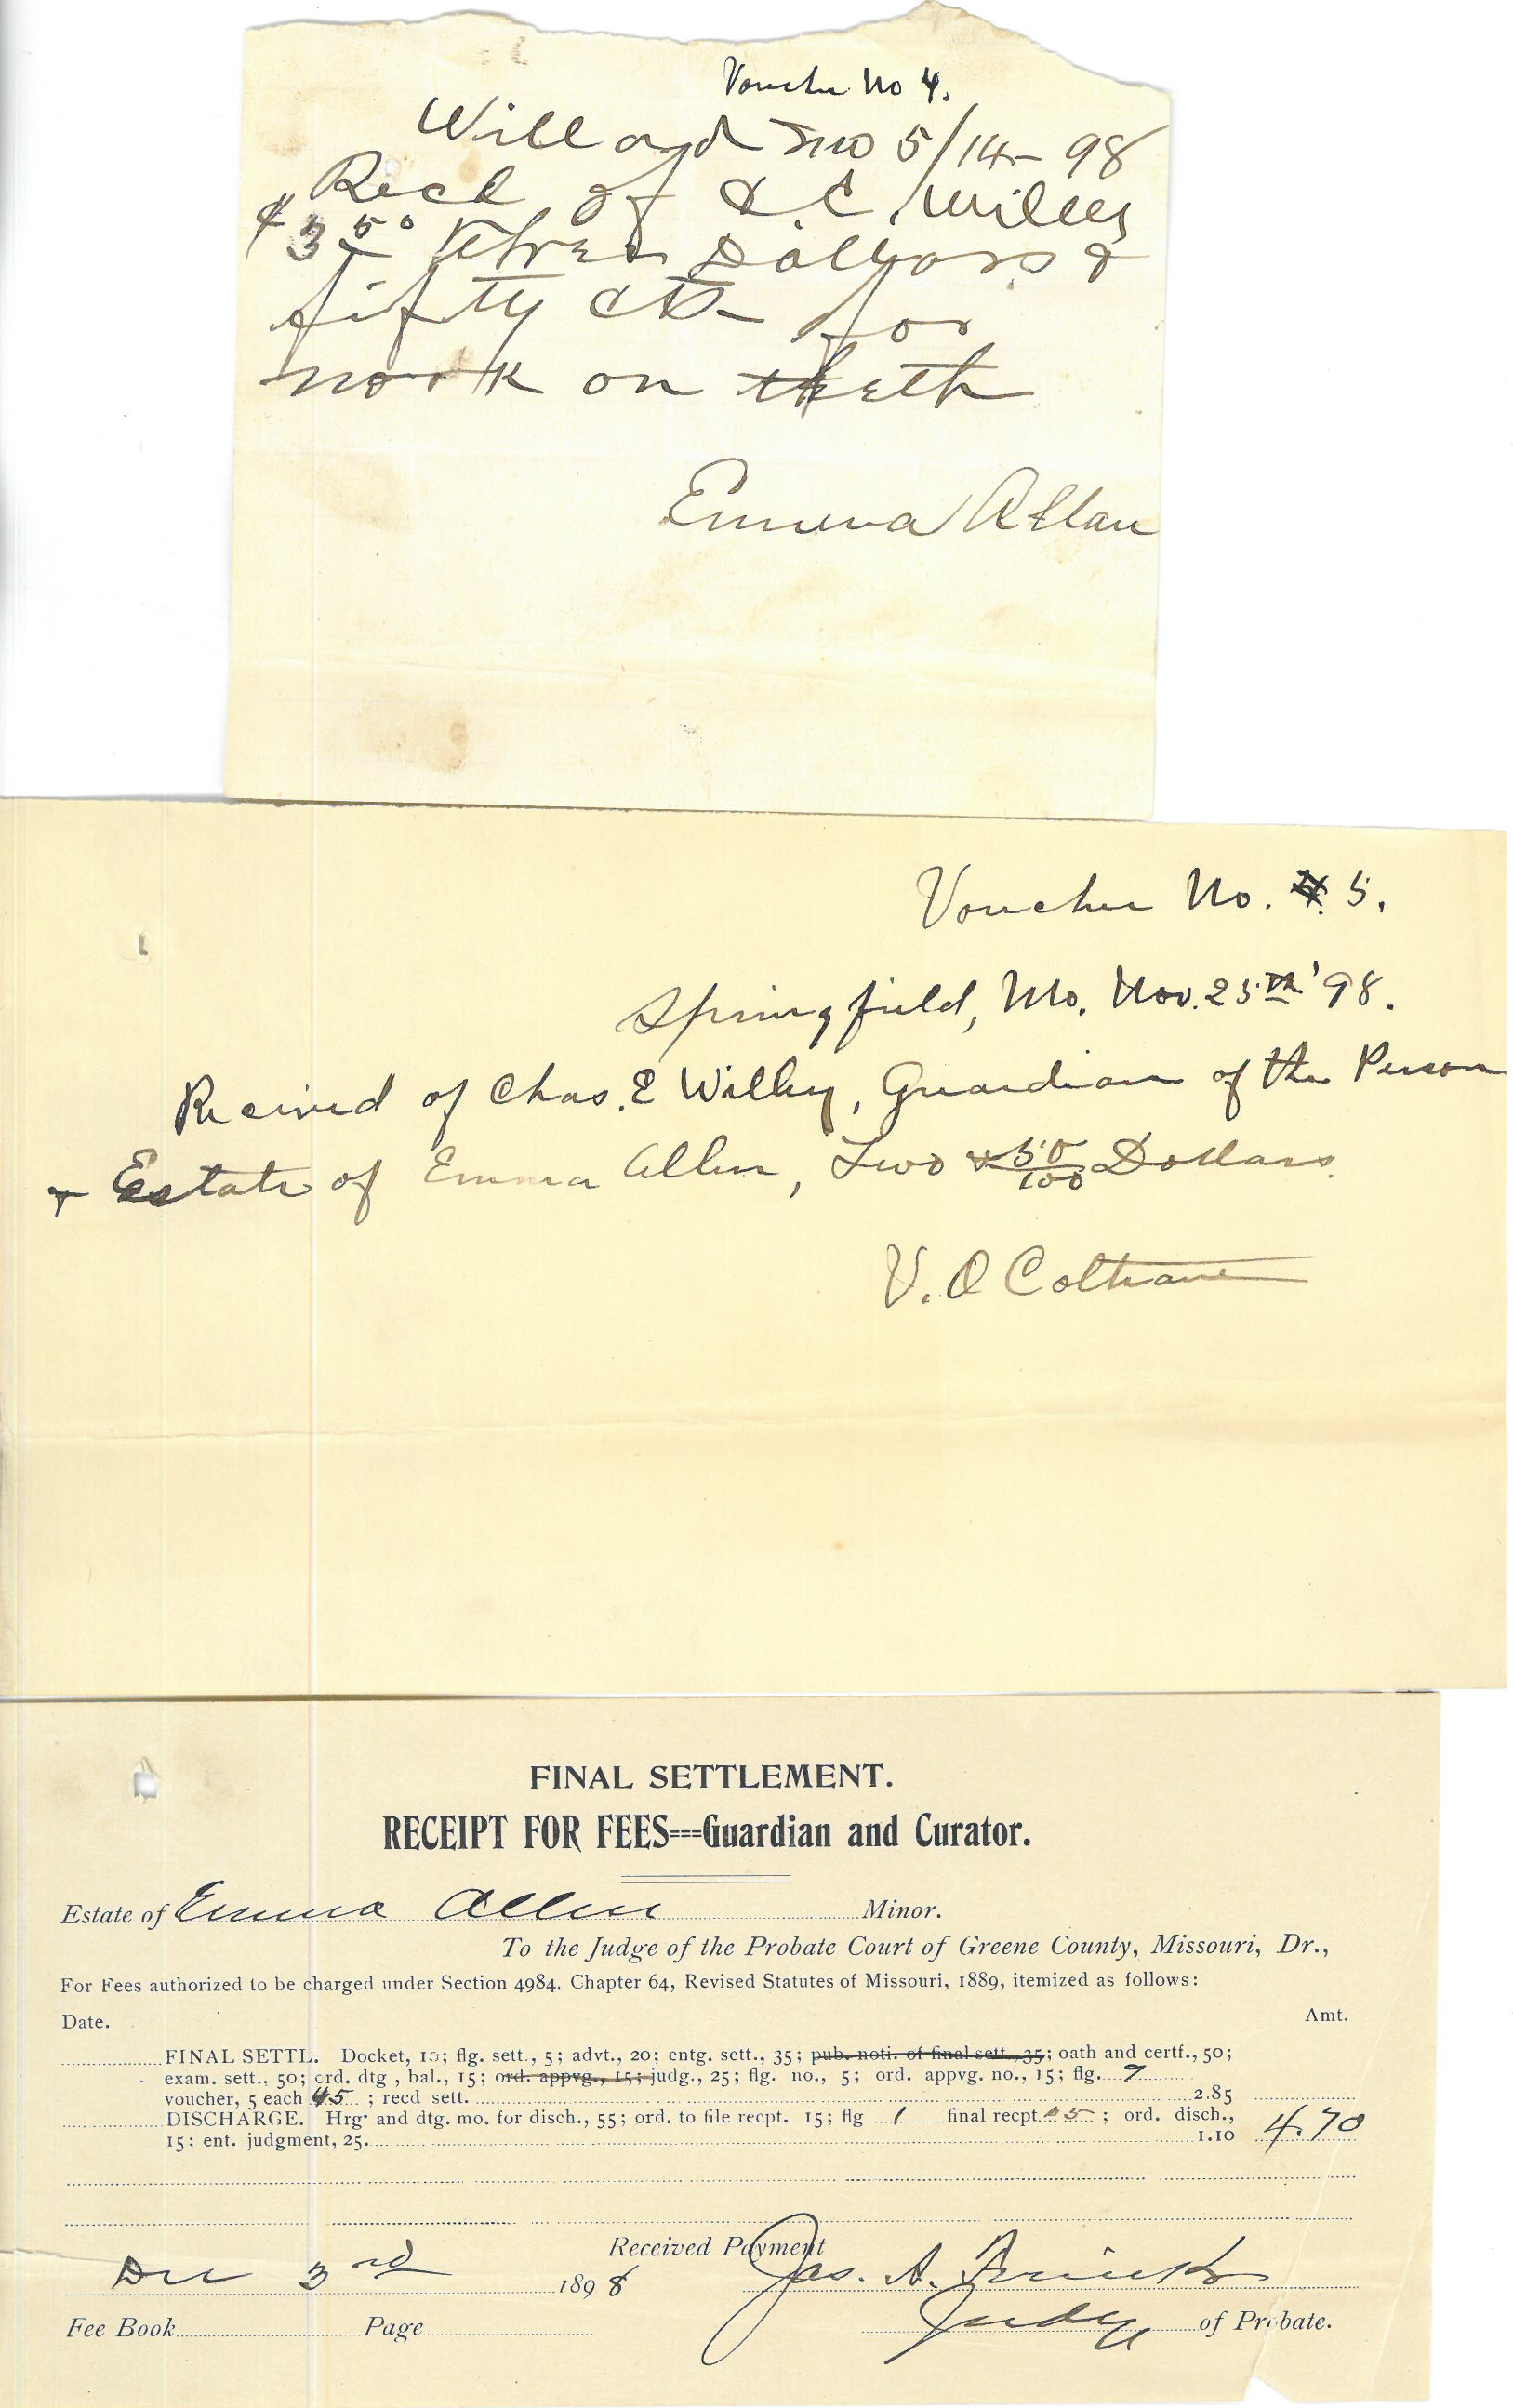 Voucher No 4.
Willard Mo 5/14-98
Recd of C. E. Willey
$3 50 Three Dollars &
fifty cts for
work on teeth
Emma Allen
Voucher No. 5.
Springfield, Mo. Nov. 25th '98.
Received of Chas. E Willey, Guardian of the Person
& Estate of Emma Allen, Two & 50/100 Dollars.
V. O Coltrane
FINAL SETTLEMENT.
RECEIPT FOR FEES===Guardian and Curator.
Estate of Emma Allen Minor.
To the Judge of the Probate Court of Greene County, Missouri, Dr.,
For Fees authorized to be charged under Section 4984, Chapter 64, Revised Statutes of Missouri, 1889, itemized as follows:
Date. Amt.
FINAL SETTL. Docket, 10; flg. sett., 5; advt., 20; entg. sett., 35; pub. noti. of final sett., 35; oath and certf., 50;
exam. sett., 50; ord. dtg, bal., 15; ord. appvg., 15; judg., 25; flg. no., 5; ord. appvg. no., 15; flg. 9
voucher, 5 each 45; recd sett. 2.85
DISCHARGE. Hrg. and dtg. mo. for disch., 55; ord. to file recpt. 15; flg 1 final recpt 05; ord. disch.,
15; ent. judgment, 25. 1.10 4.70
Received Payment
Dec 3rd 1898 Jas. A. Frink
Fee Book Page Judge of Probate.